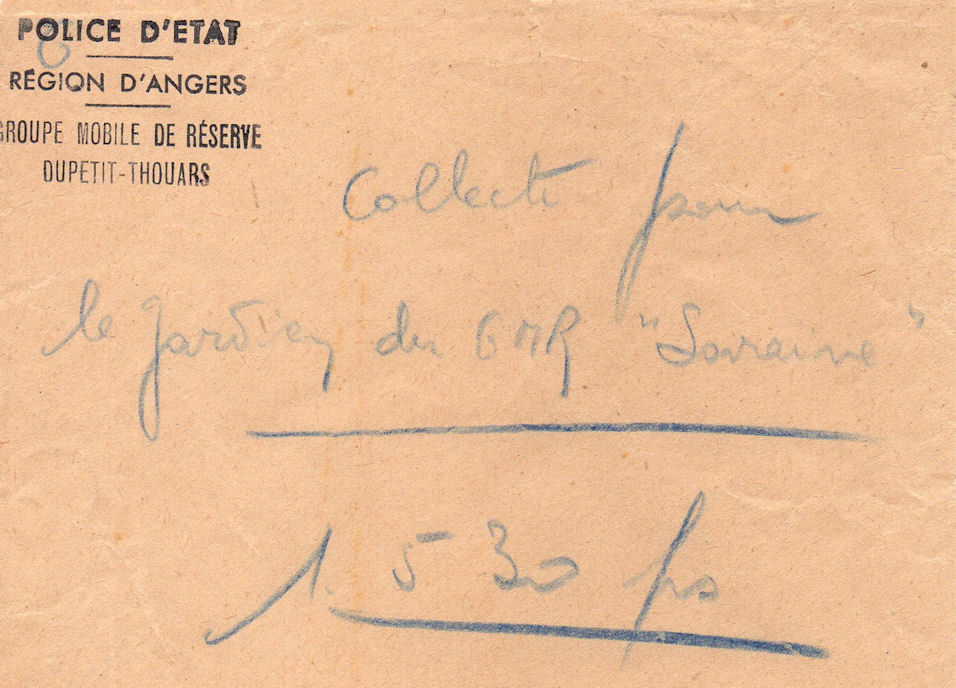 POLICE D'ETAT
RÉGION D'ANGERS
GROUPE MOBILE DE RÉSERVE
DUPETIT-THOUARS
Collecte pour
le gardien du GMR "Lorraine"
1.530 frs